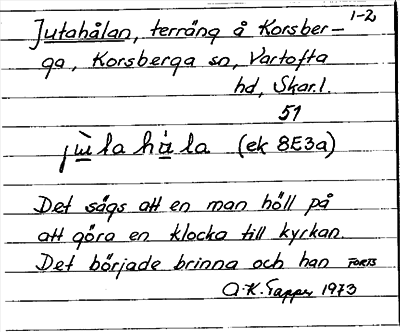 1-2
Jutahålan, terräng å Korsber-
ga, Korsberga sn, Vartofta
hd, Skar.l.
51
(ek 8E3a)
Det sägs att en man höll på
att göra en klocka till kyrkan.
Det började brinna och han FORTS
A-K. Tapper 1973